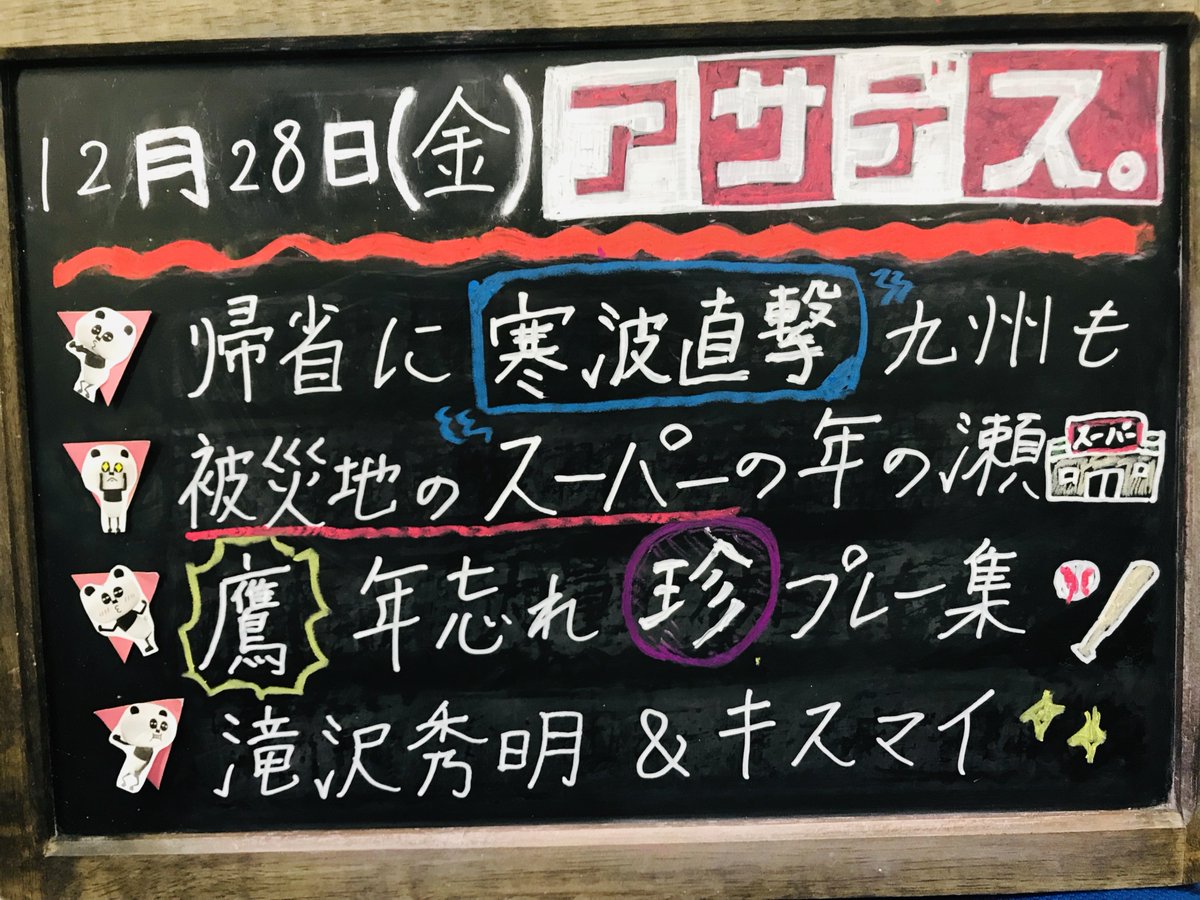 12月28日(金) アサデス。
帰省に 寒波直撃 九州も
被災地のスーパーの年の瀬 スーパー
鷹 年忘れ 珍プレー集
滝沢秀明&キスマイ